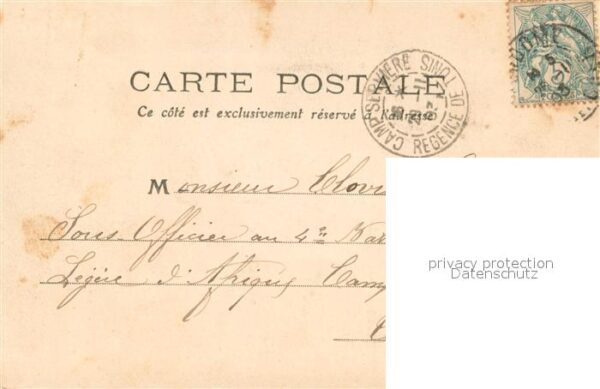 CARTE POSTALE
Ce côté est exclusivement réservé à l'adresse
CAMP-SERVIÈRE RÉGENCE DE TUNIS
Monsieur Clovi
Sous-Officier au 4e Bat
Légère d'Afrique Camp
privacy protection
Datenschutz